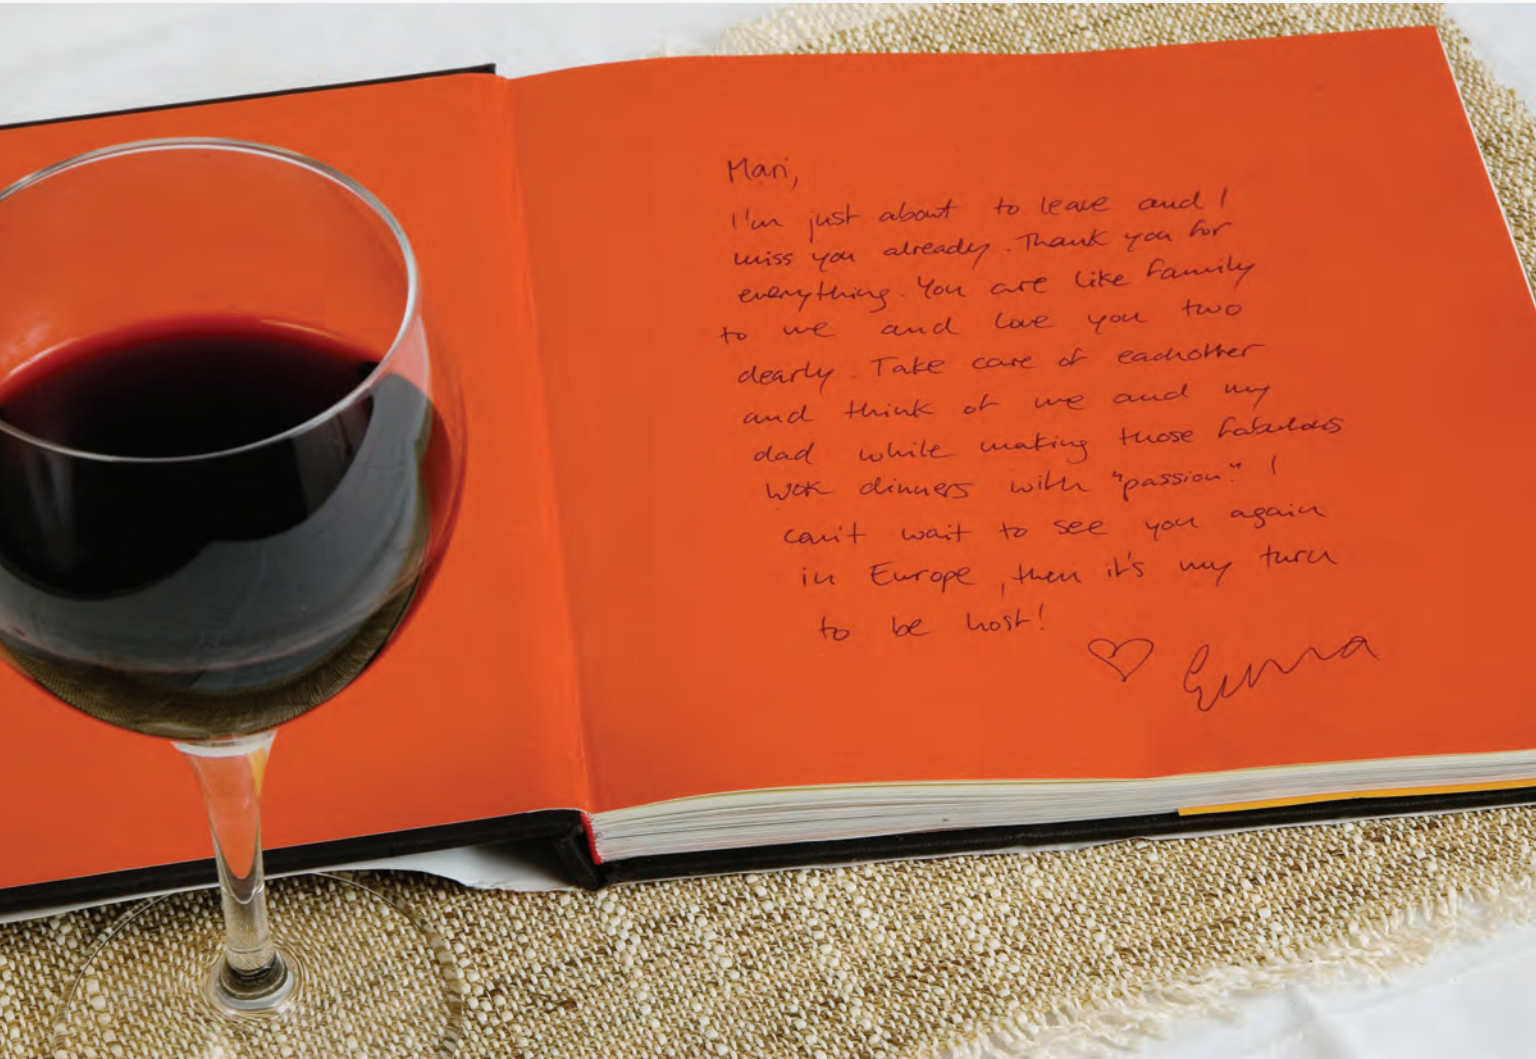 Mari,
I'm just about to leave and I
miss you already. Thank you for
everything. You are like family
to me and love you two
dearly. Take care of eachother
and think of me and my
dad while making those fabulous
wok dinners with "passion". I
can't wait to see you again
in Europe, then it's my turn
to be host!
♡ Emma